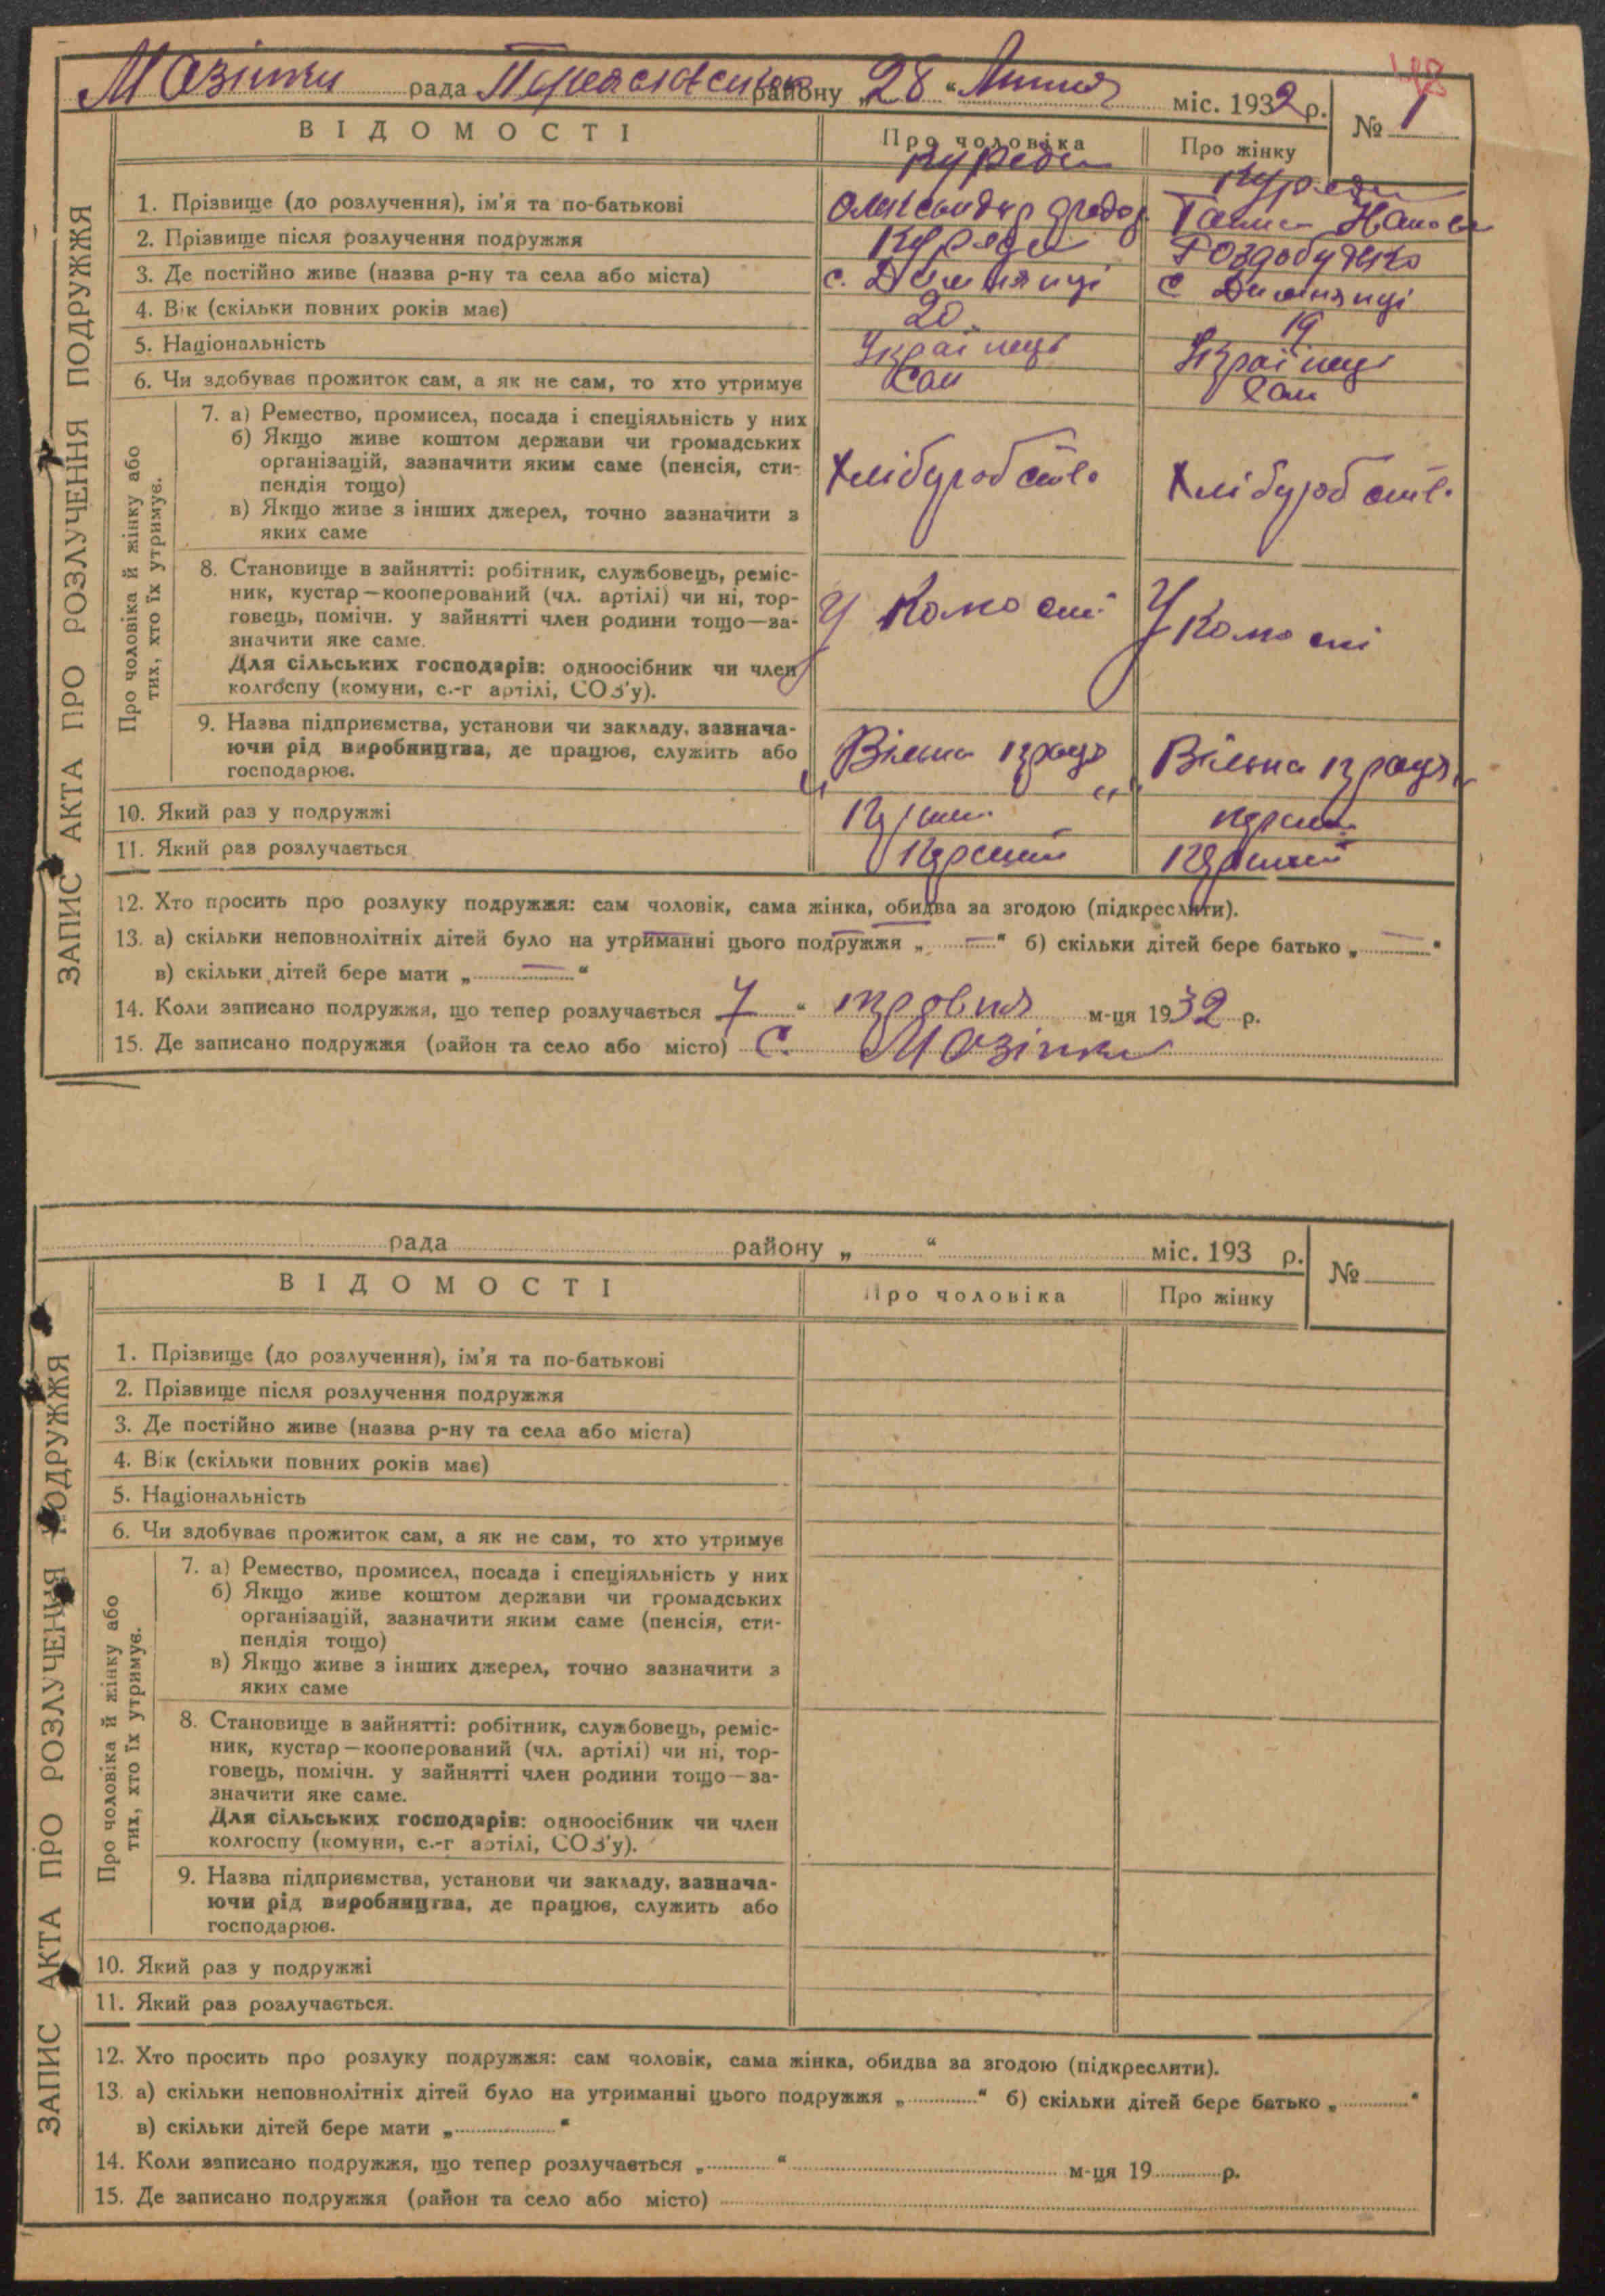 48
Мазінки рада Переяславського району „28“ Липня міс. 1932 р. № 1
ВІДОМОСТІ Про чоловіка Про жінку
1. Прізвище (до розлучення), ім'я та по-батькові Олександр Федор. Ганна Іванов
2. Прізвище після розлучення подружжя Роздобудько
3. Де постійно живе (назва р-ну та села або міста) с. Дем'янці с Дем'янці
4. Вік (скільки повних років має) 20 19
5. Національність Українець Українець
6. Чи здобуває прожиток сам, а як не сам, то хто утримує Сам Сам
Про чоловіка й жінку або
тих, хто їх утримує.
7. а) Ремество, промисел, посада і спеціяльність у них
б) Якщо живе коштом держави чи громадських
організацій, зазначити яким саме (пенсія, сти-
пендія тощо) Хлібуробств. Хлібуробств.
в) Якщо живе з інших джерел, точно зазначити з
яких саме
8. Становище в зайнятті: робітник, службовець, реміс-
ник, кустар—кооперований (чл. артілі) чи ні, тор-
говець, помічн. у зайнятті член родини тощо—за-
значити яке саме.
Для сільських господарів: одноосібник чи член
колгоспу (комуни, с.-г артілі, СОЗ'у).
9. Назва підприємства, установи чи закладу, зазнача-
ючи рід виробництва, де працює, служить або
господарює. „Вільна праця“ „Вільна праця“
10. Який раз у подружжі
11. Який раз розлучається Перший Перший
12. Хто просить про розлуку подружжя: сам чоловік, сама жінка, обидва за згодою (підкреслити).
13. а) скільки неповнолітніх дітей було на утриманні цього подружжя „ — “ б) скільки дітей бере батько „ — “
в) скільки дітей бере мати „ — “
14. Коли записано подружжя, що тепер розлучається „7“ травня м-ця 1932 р.
15. Де записано подружжя (район та село або місто) С. Мазінки
ЗАПИС АКТА ПРО РОЗЛУЧЕННЯ ПОДРУЖЖЯ
рада району „ “ міс. 193 р. №
ВІДОМОСТІ Про чоловіка Про жінку
1. Прізвище (до розлучення), ім'я та по-батькові
2. Прізвище після розлучення подружжя
3. Де постійно живе (назва р-ну та села або міста)
4. Вік (скільки повних років має)
5. Національність
6. Чи здобуває прожиток сам, а як не сам, то хто утримує
Про чоловіка й жінку або
тих, хто їх утримує.
7. а) Ремество, промисел, посада і спеціяльність у них
б) Якщо живе коштом держави чи громадських
організацій, зазначити яким саме (пенсія, сти-
пендія тощо)
в) Якщо живе з інших джерел, точно зазначити з
яких саме
8. Становище в зайнятті: робітник, службовець, реміс-
ник, кустар—кооперований (чл. артілі) чи ні, тор-
говець, помічн. у зайнятті член родини тощо—за-
значити яке саме.
Для сільських господарів: одноосібник чи член
колгоспу (комуни, с.-г артілі, СОЗ'у).
9. Назва підприємства, установи чи закладу, зазнача-
ючи рід виробництва, де працює, служить або
господарює.
10. Який раз у подружжі
11. Який раз розлучається.
12. Хто просить про розлуку подружжя: сам чоловік, сама жінка, обидва за згодою (підкреслити).
13. а) скільки неповнолітніх дітей було на утриманні цього подружжя „ “ б) скільки дітей бере батько „ “
в) скільки дітей бере мати „ “
14. Коли записано подружжя, що тепер розлучається „ “ м-ця 19 р.
15. Де записано подружжя (район та село або місто)
ЗАПИС АКТА ПРО РОЗЛУЧЕННЯ ПОДРУЖЖЯ